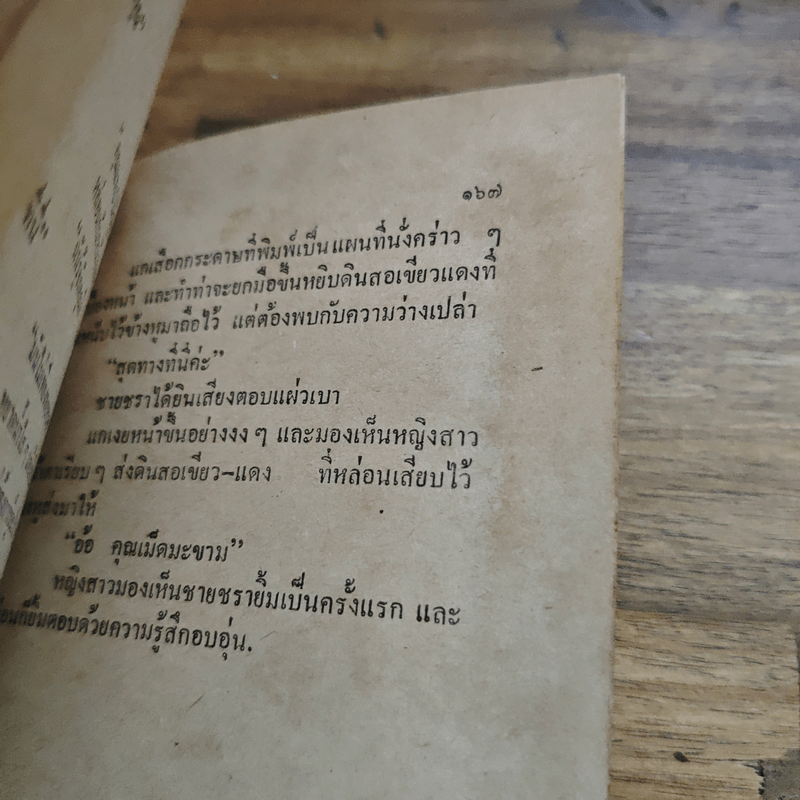 ๑๖๗
แกเลือกกระดาษที่พิมพ์เป็นแผนที่นั่งคร่าว ๆ
หน้า และทำท่าจะยกมือขึ้นหยิบดินสอเขียวแดงที่
ไว้ข้างหูมาถือไว้ แต่ต้องพบกับความว่างเปล่า
“สุดทางที่นี่ค่ะ”
ชายชราได้ยินเสียงตอบแผ่วเบา
แกเงยหน้าขึ้นอย่างงง ๆ และมองเห็นหญิงสาว
เรียบ ๆ ส่งดินสอเขียว-แดง ที่หล่อนเสียบไว้
ส่งมาให้
“อ้อ คุณเม็ดมะขาม”
หญิงสาวมองเห็นชายชรายิ้มเป็นครั้งแรก และ
ก็ยิ้มตอบด้วยความรู้สึกอบอุ่น.